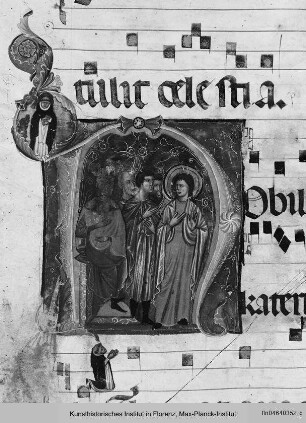 tulit cele stia.
obil
kateri
Kunsthistorisches Institut in Florenz, Max-Planck-Institut